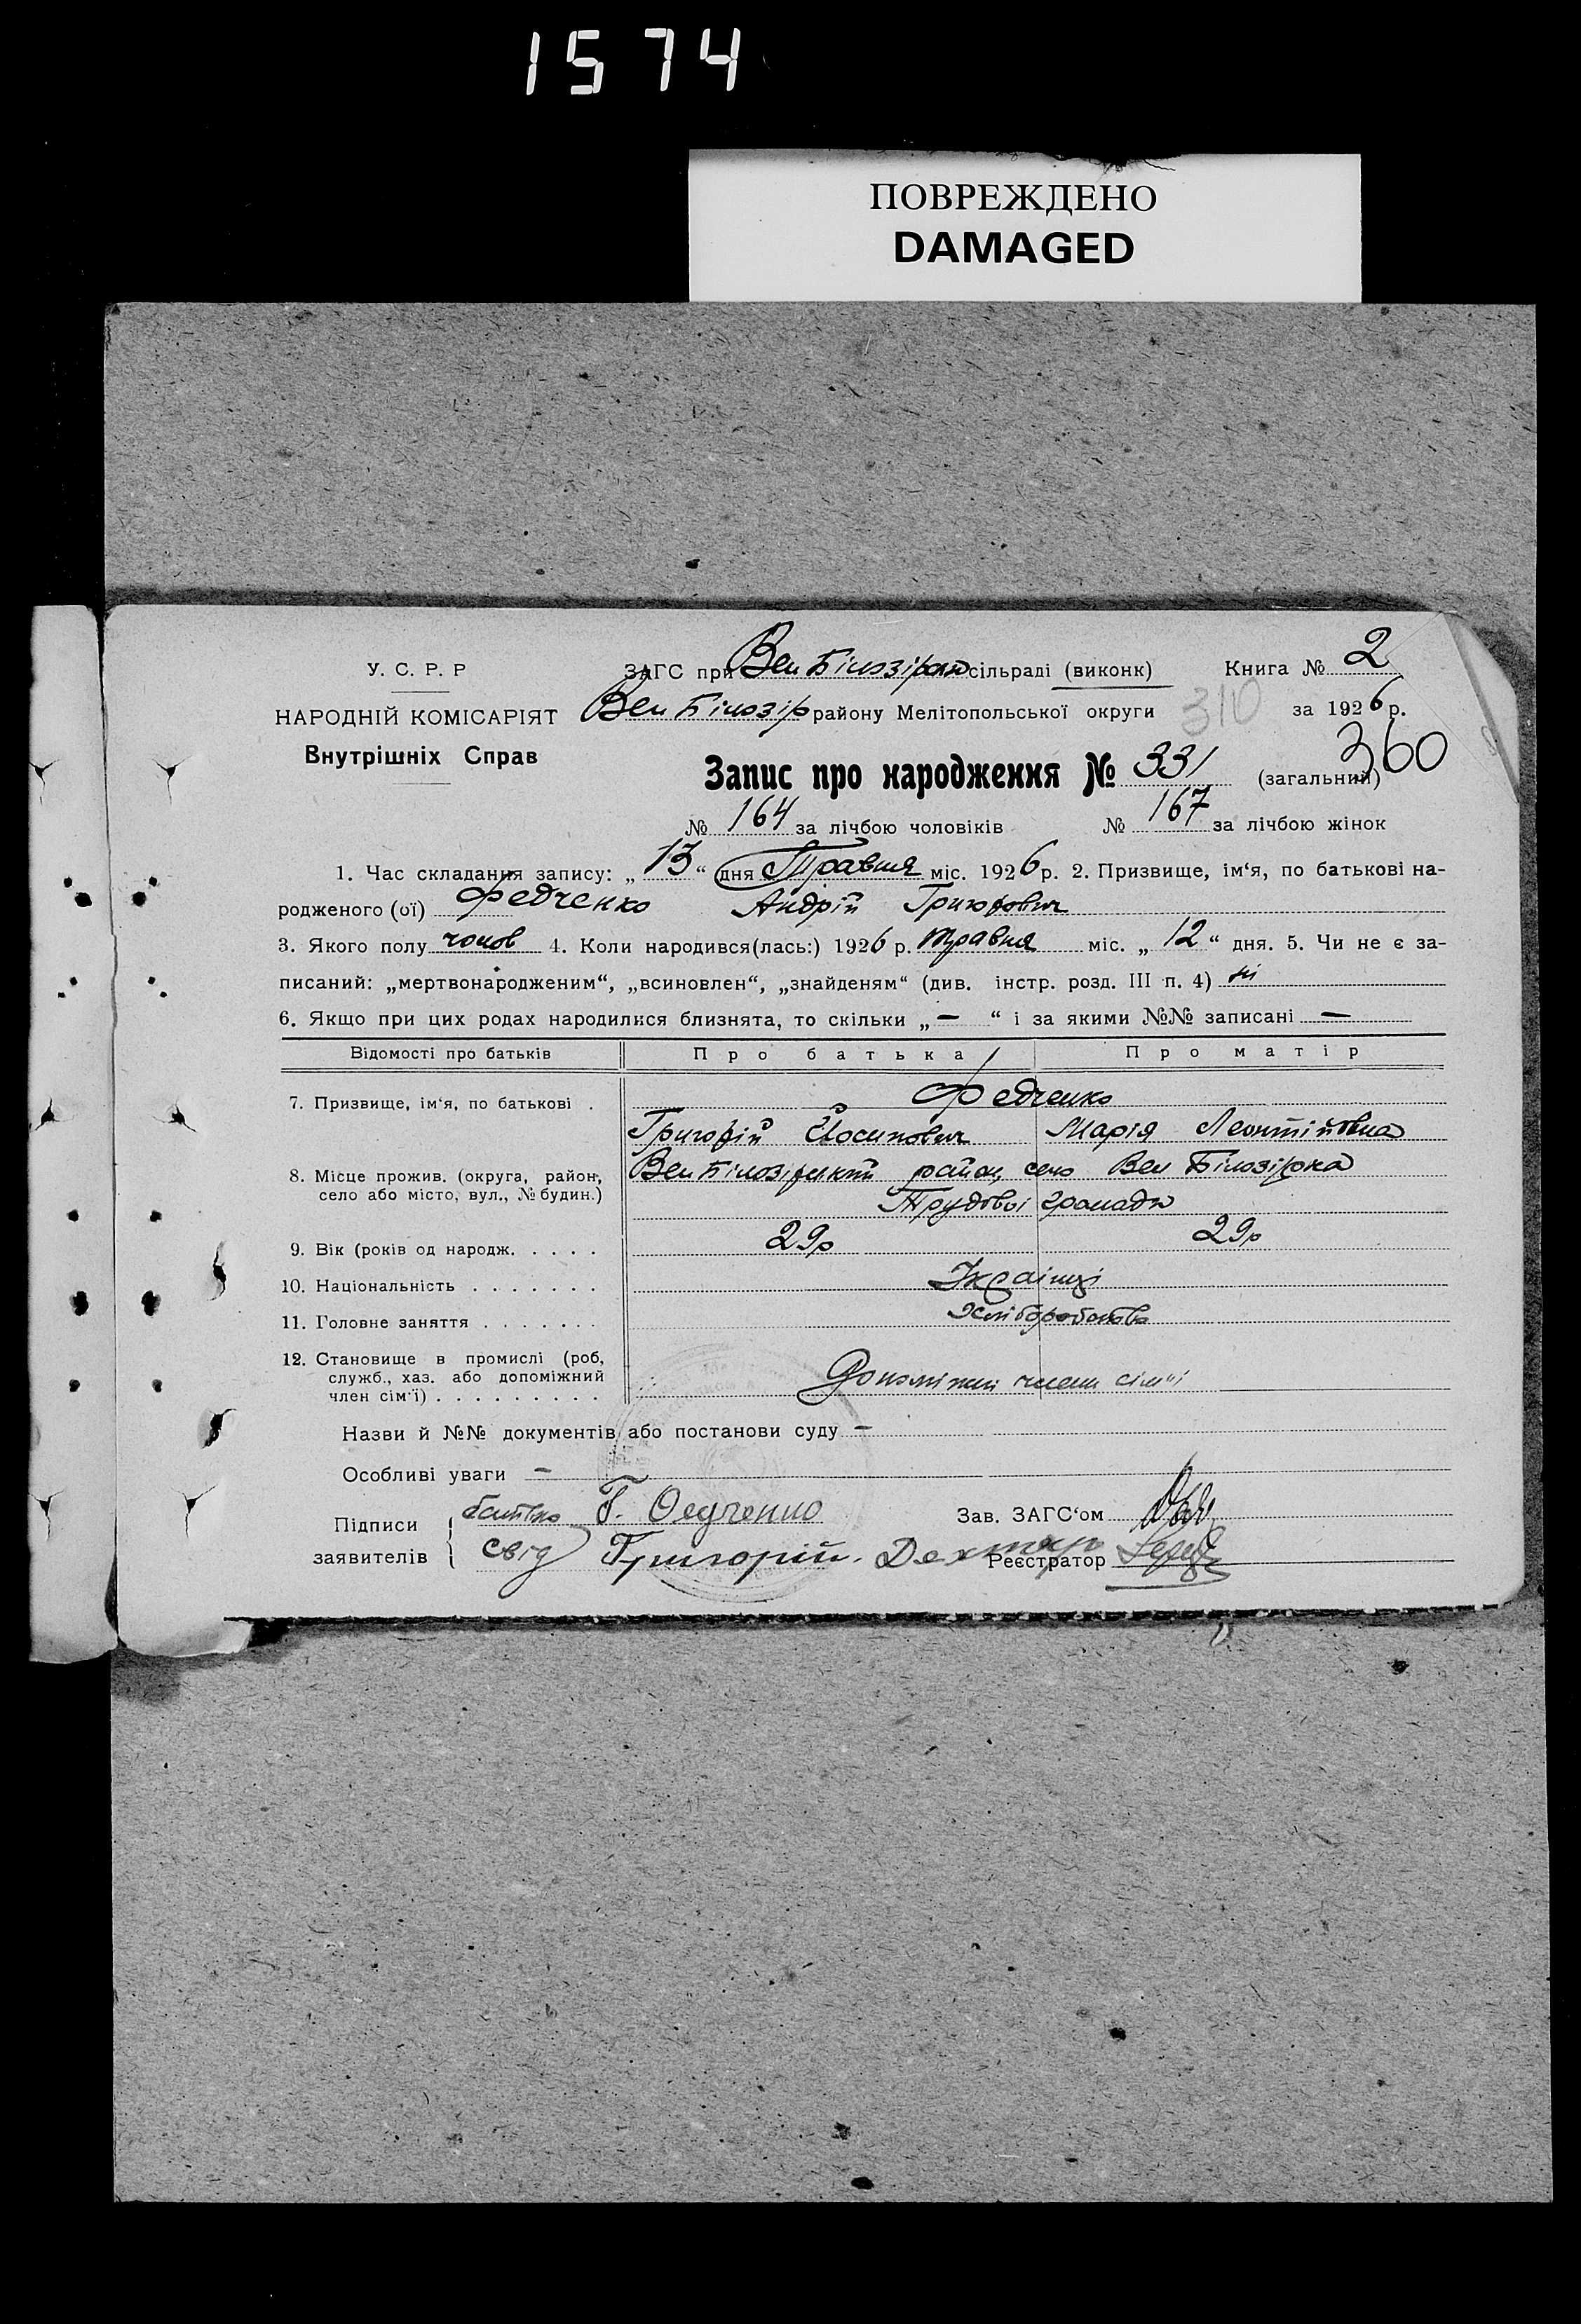 1574
ПОВРЕЖДЕНО
DAMAGED
У. С. Р. Р
НАРОДНІЙ КОМІСАРІЯТ
Внутрішніх Справ
ЗАГС при Вел Білозірск сільраді (виконк) Книга № 2
Вел Білозір району Мелітопольської округи 310 за 1926 р.
360
Запис про народження № 331 (загальний)
№ 164 за лічбою чоловіків № 167 за лічбою жінок
1. Час складання запису: „13“ дня Травня міс. 1926 р. 2. Призвище, ім‘я, по батькові на-
родженого (ої) Федченко Андрій Григорович
3. Якого полу чолов 4. Коли народився(лась:) 1926 р. травня міс. „12“ дня. 5. Чи не є за-
писаний: „мертвонародженим“, „всиновлен“, „знайденям“ (див. інстр. розд. III п. 4) ні
6. Якщо при цих родах народилися близнята, то скільки „—“ і за якими №№ записані —
Відомості про батьків Про батька Про матір
7. Призвище, ім‘я, по батькові . Федченко
Григорій Йосипович Марія Леонтіївна
8. Місце прожив. (округа, район, село або місто, вул., № будин.) Вел Білозірський район, село Вел Білозірка
Трудової громади
9. Вік (років од народж. . . . . 29р 29р
10. Національність . . . . . . . Українці
11. Головне заняття . . . . . . . Хліборобство
12. Становище в промислі (роб,
служб., хаз. або допоміжний
член сім‘ї) . . . . . . . . . Допоміжні члени сім'ї
Назви й №№ документів або постанови суду —
Особливі уваги —
Підписи заявителів { батько Г. Федченко Зав. ЗАГС‘ом
свід Григорій Дехтяр Реєстратор